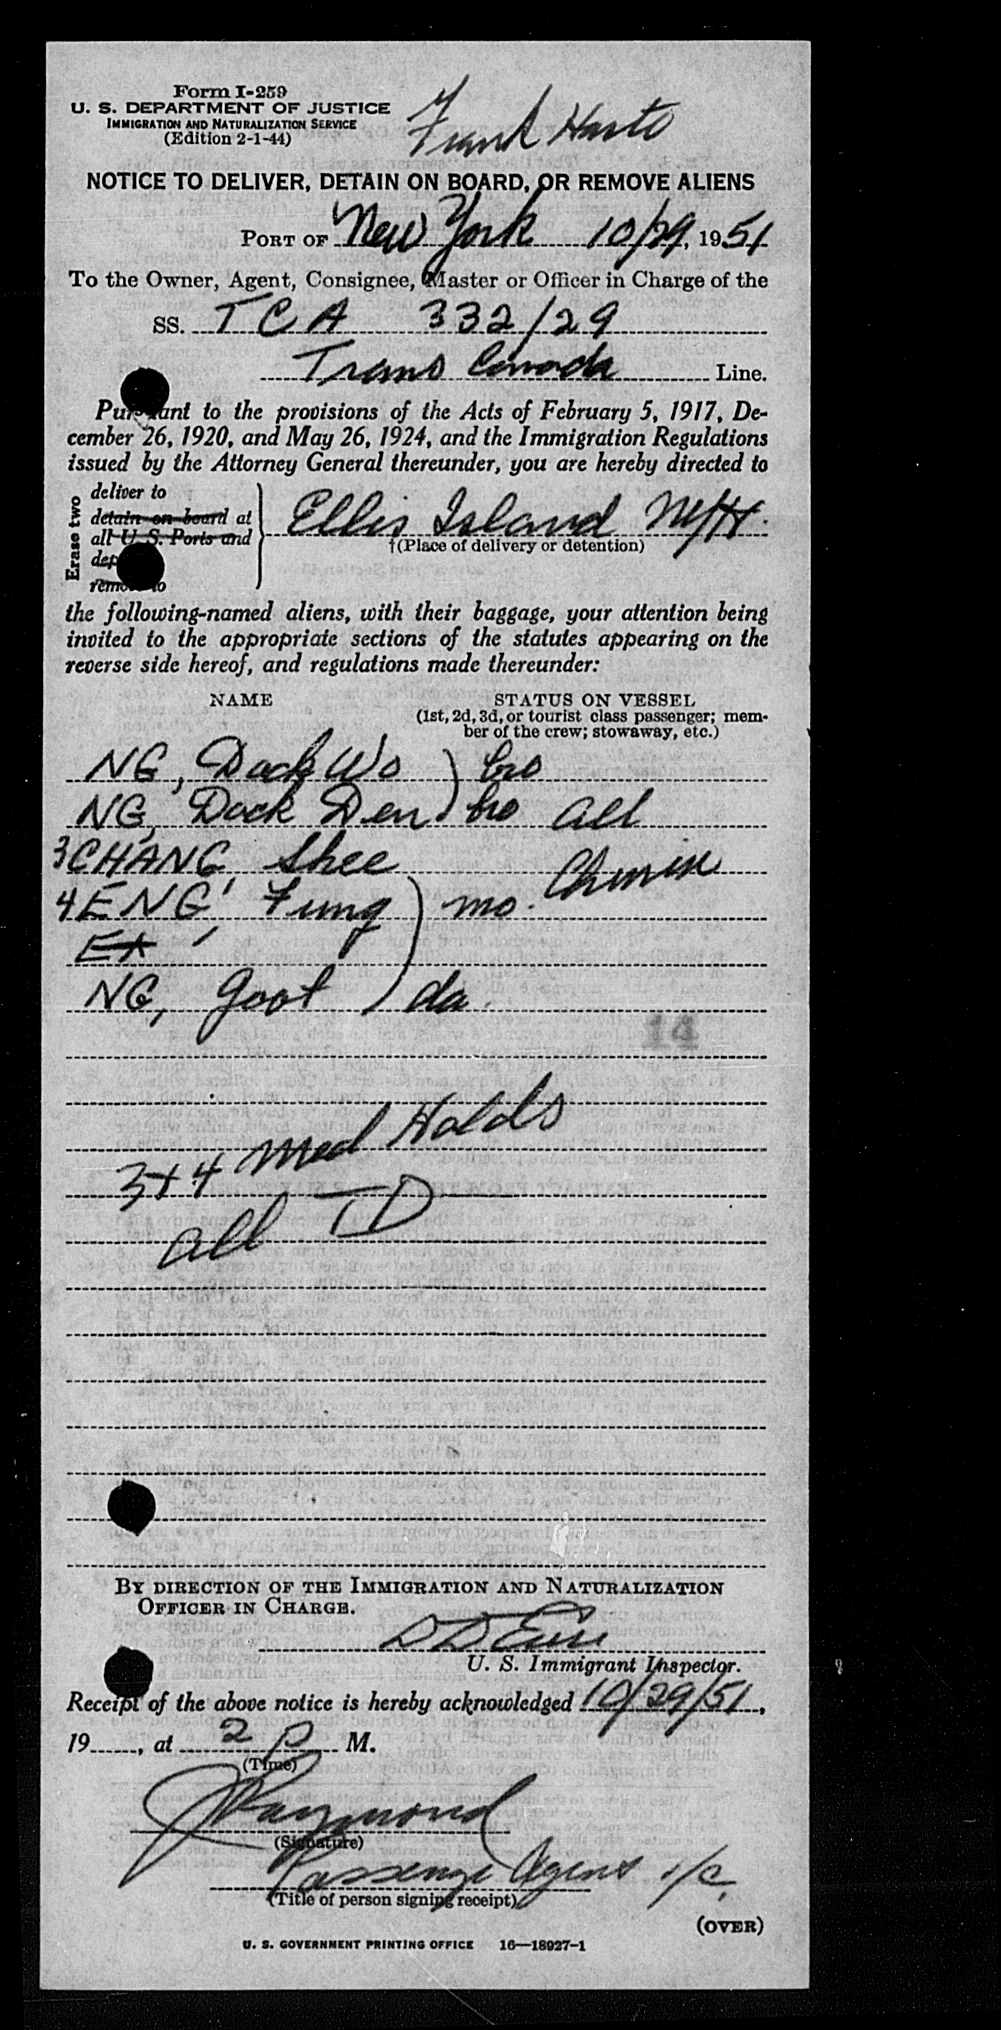 Form I-259
U. S. DEPARTMENT OF JUSTICE
IMMIGRATION AND NATURALIZATION SERVICE
(Edition 2-1-44)
Frank
NOTICE TO DELIVER, DETAIN ON BOARD, OR REMOVE ALIENS
PORT OF New York 10/29, 1951
To the Owner, Agent, Consignee, Master or Officer in Charge of the
SS. TCA 332/29
Trans Canada Line.
Pursuant to the provisions of the Acts of February 5, 1917, De-
cember 26, 1920, and May 26, 1924, and the Immigration Regulations
issued by the Attorney General thereunder, you are hereby directed to
Erase two
deliver to
detain on board at
all U. S. Ports and
remove to
Ellis Island
†(Place of delivery or detention)
the following-named aliens, with their baggage, your attention being
invited to the appropriate sections of the statutes appearing on the
reverse side hereof, and regulations made thereunder:
NAME STATUS ON VESSEL
(1st, 2d, 3d, or tourist class passenger; mem-
ber of the crew; stowaway, etc.)
NG, Dock Wo ) bro
NG, Dock Den ) bro all
3 CHANG, Shee Chinese
4 ENG, Fung ) mo.
NG, Goot ) da.
14
3+4 Med Holds
all TD
BY DIRECTION OF THE IMMIGRATION AND NATURALIZATION
OFFICER IN CHARGE.
U. S. Immigrant Inspector.
Receipt of the above notice is hereby acknowledged 10/29/51,
19......, at 2 P M.
(Time)
J Raymond
(Signature)
Passenger Agent i/c.
(Title of person signing receipt)
(OVER)
U. S. GOVERNMENT PRINTING OFFICE 16—18927-1